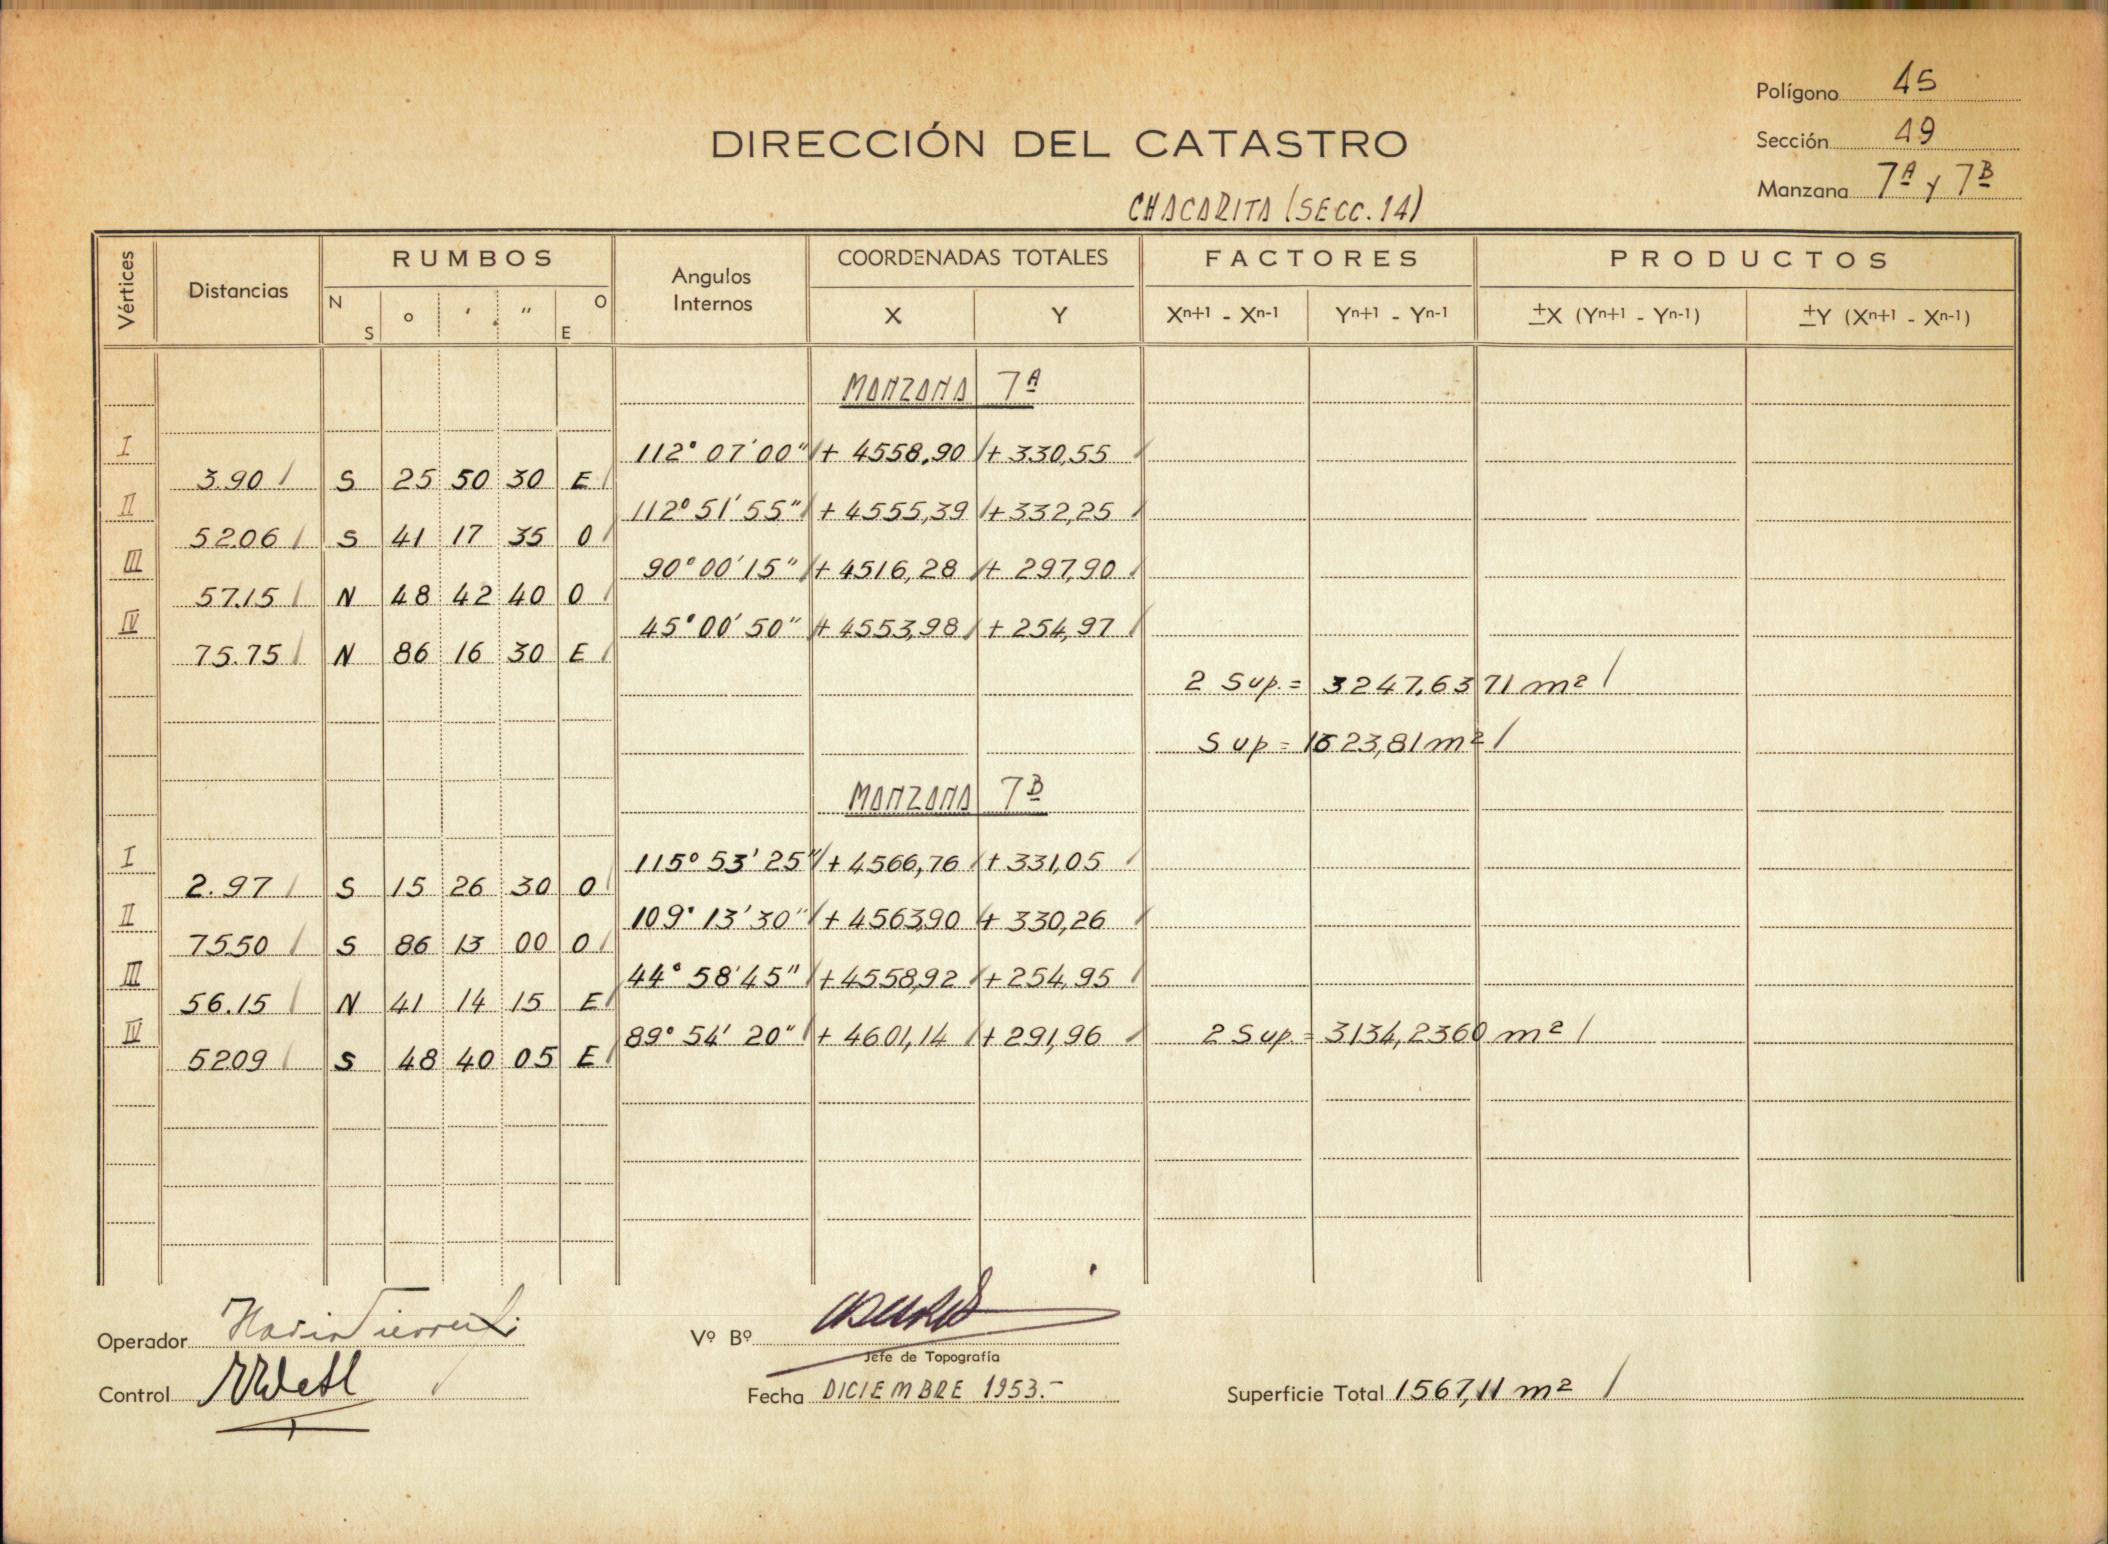 Polígono 45
DIRECCIÓN DEL CATASTRO
Sección 49
Manzana 7ᴬ y 7ᴮ
CHACARITA (SECC. 14)
Vértices Distancias RUMBOS Angulos Internos COORDENADAS TOTALES FACTORES PRODUCTOS
N S ° ′ ″ O E X Y Xⁿ⁺¹ - Xⁿ⁻¹ Yⁿ⁺¹ - Yⁿ⁻¹ ±X (Yⁿ⁺¹ - Yⁿ⁻¹) ±Y (Xⁿ⁺¹ - Xⁿ⁻¹)
MANZANA 7ᴬ
I 112° 07′ 00″ + 4558,90 + 330,55
3.90 S 25 50 30 E
II 112° 51′ 55″ + 4555,39 + 332,25
52.06 S 41 17 35 O
III 90° 00′ 15″ + 4516,28 + 297,90
57.15 N 48 42 40 O
IV 45° 00′ 50″ + 4553,98 + 254,97
75.75 N 86 16 30 E
2 Sup. = 3247,6371 m²
Sup = 1623,81 m²
MANZANA 7ᴮ
I 115° 53′ 25″ + 4566,76 + 331,05
2.97 S 15 26 30 O
II 109° 13′ 30″ + 4563,90 + 330,26
75.50 S 86 13 00 O
III 44° 58′ 45″ + 4558,92 + 254,95
56.15 N 41 14 15 E
IV 89° 54′ 20″ + 4601,14 + 291,96 2 Sup. = 3134,2360 m²
52.09 S 48 40 05 E
Operador
Vº Bº
Jefe de Topografía
Control
Fecha DICIEMBRE 1953.-
Superficie Total 1567,11 m²